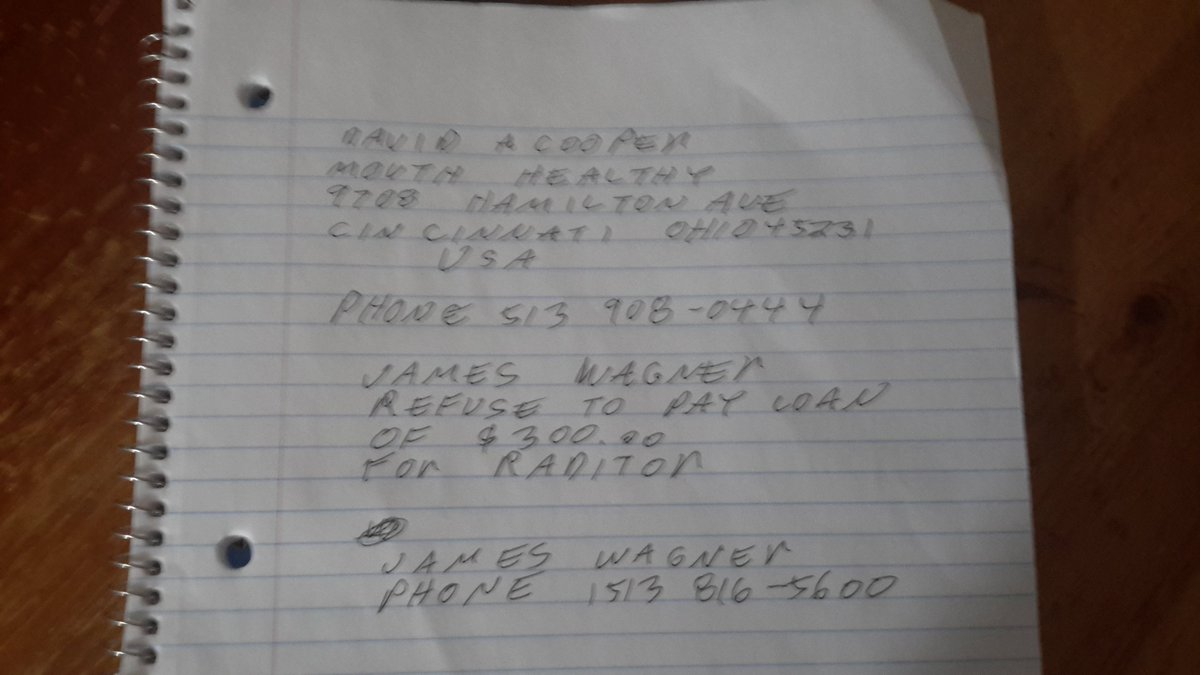 DAVID A COOPER
MOUTH HEALTHY
9708 HAMILTON AVE
CINCINNATI OHIO 45231
USA
PHONE 513 908-0444
JAMES WAGNER
REFUSE TO PAY LOAN
OF $300.00
FOR RADITOR
JAMES WAGNER
PHONE 1513 816-5600